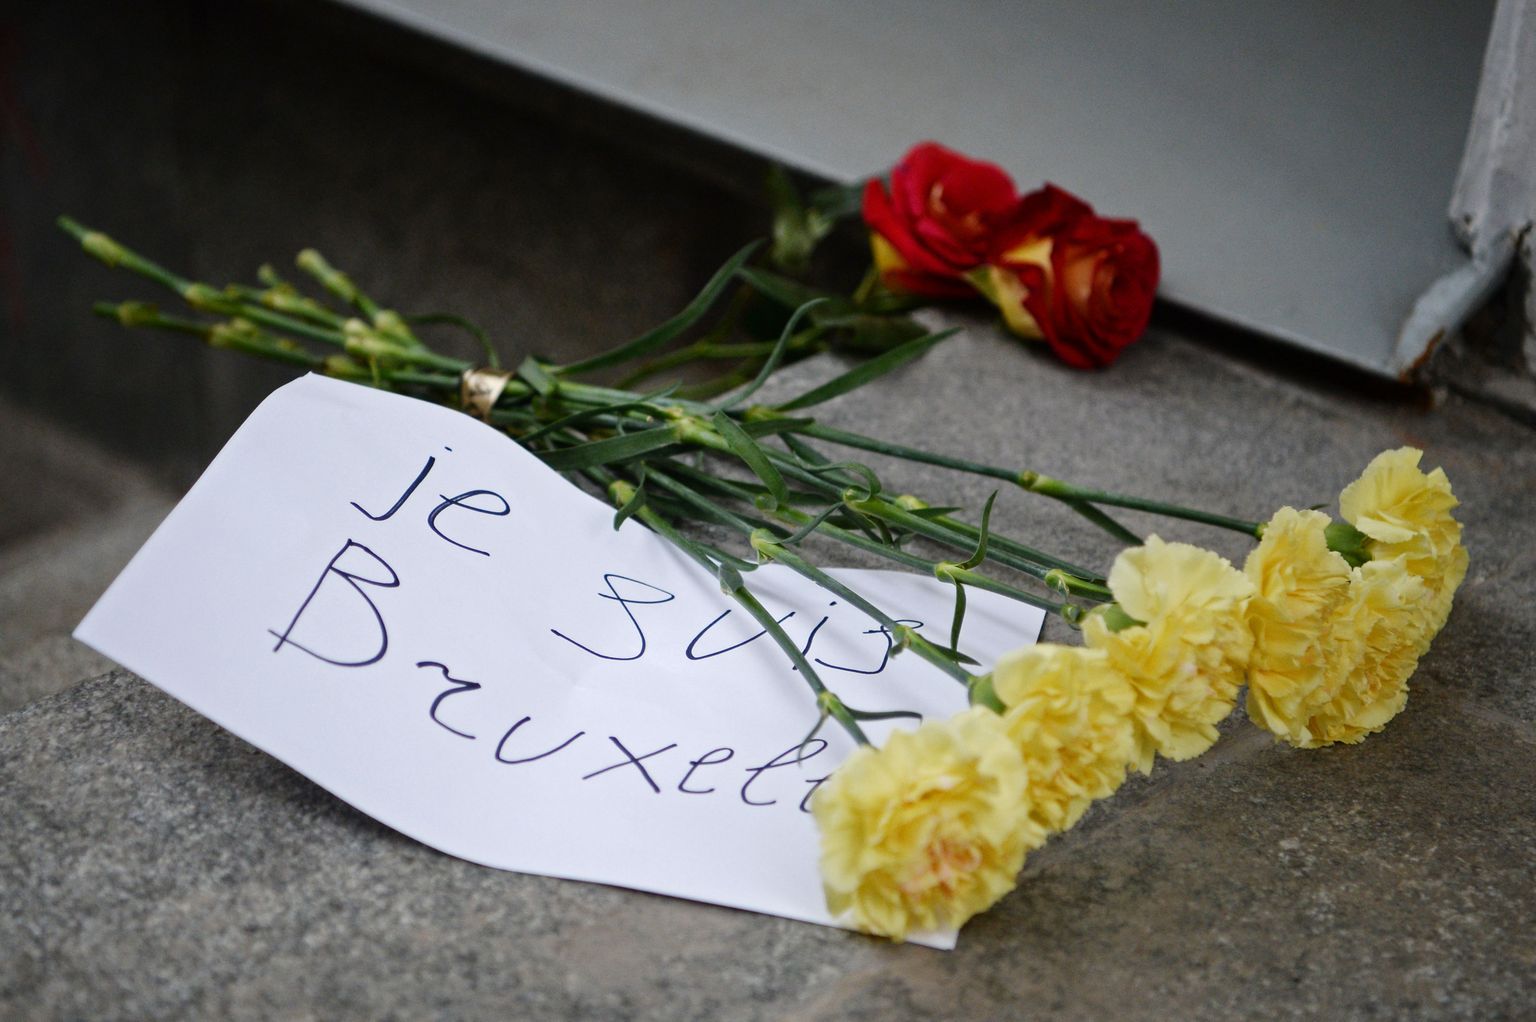 je suis
Bruxell